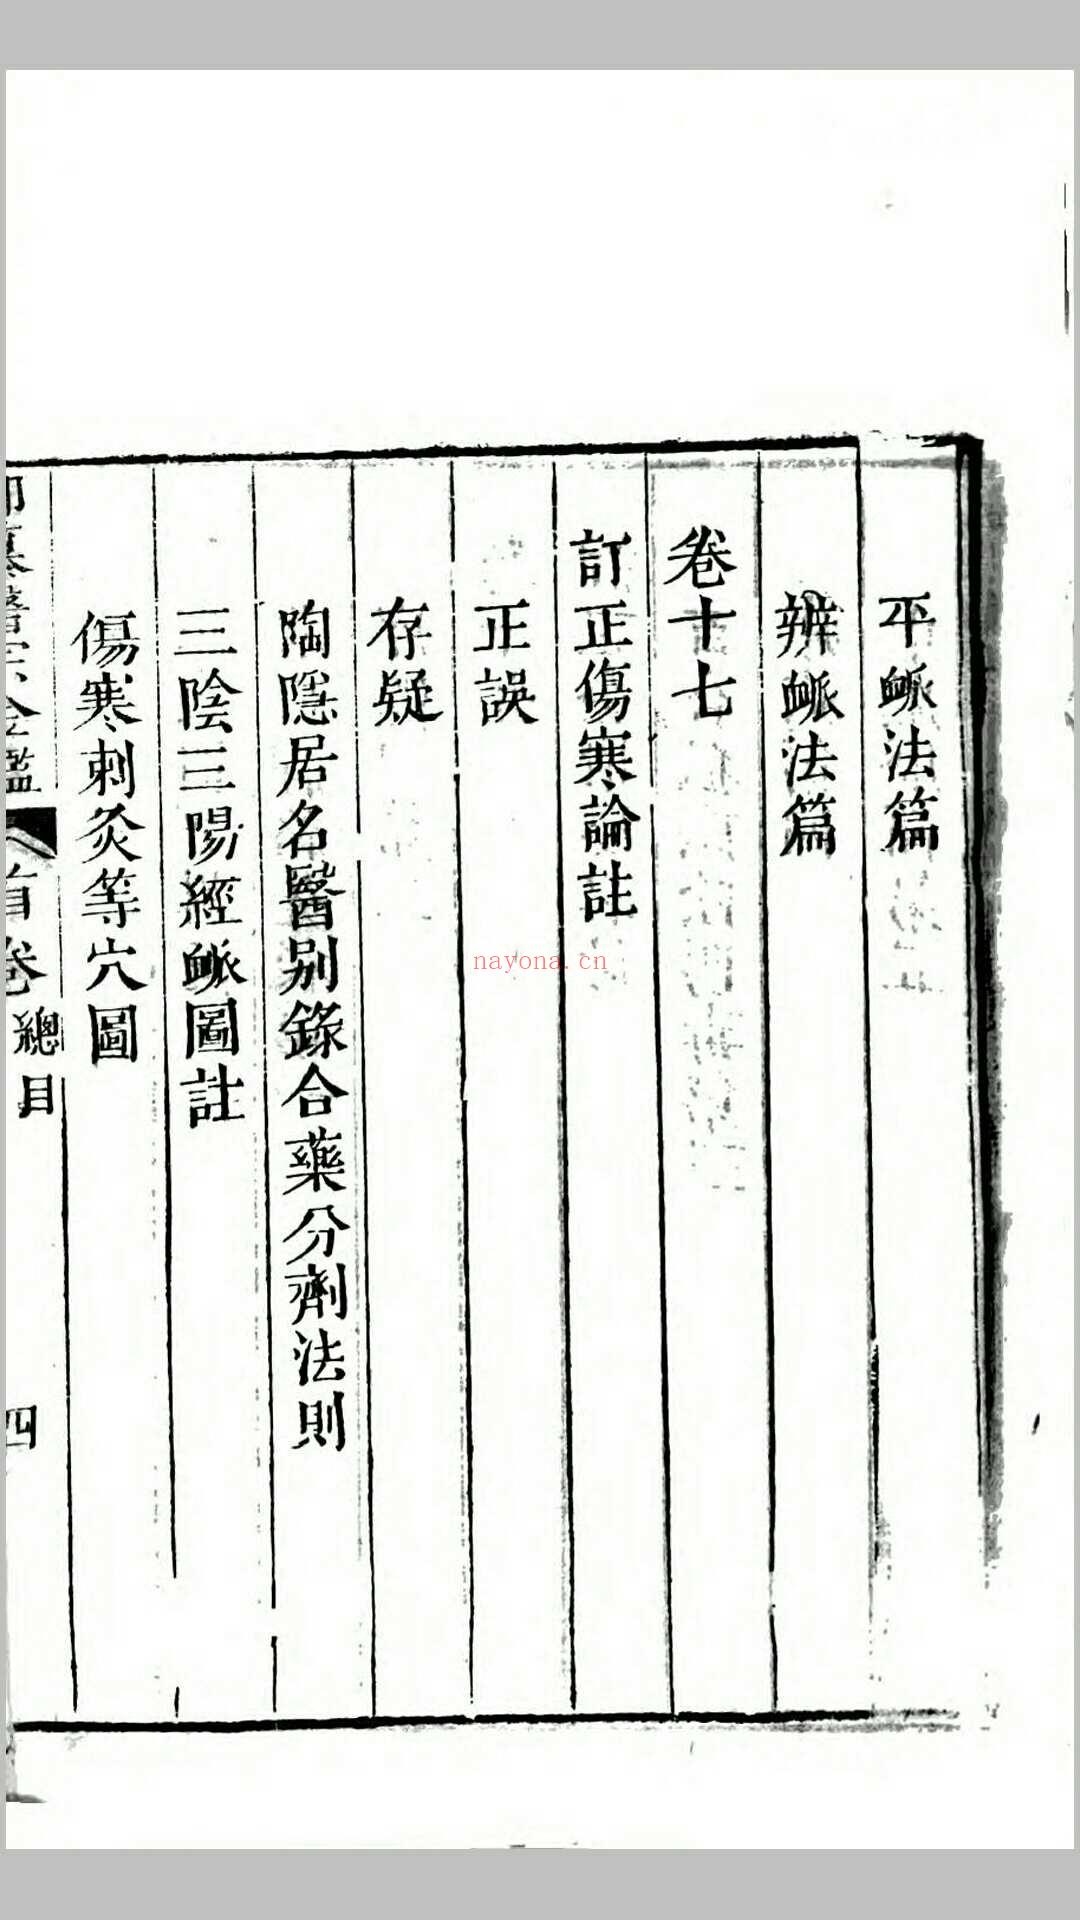 平䘑法篇
辨䘑法篇
卷十七
訂正傷寒論註
正誤
存疑
陶隱居名醫別錄合藥分劑法則
三陰三陽經䘑圖註
傷寒刺灸等穴圖
醫宗金鑑
首卷
總目
四
nayona.cn